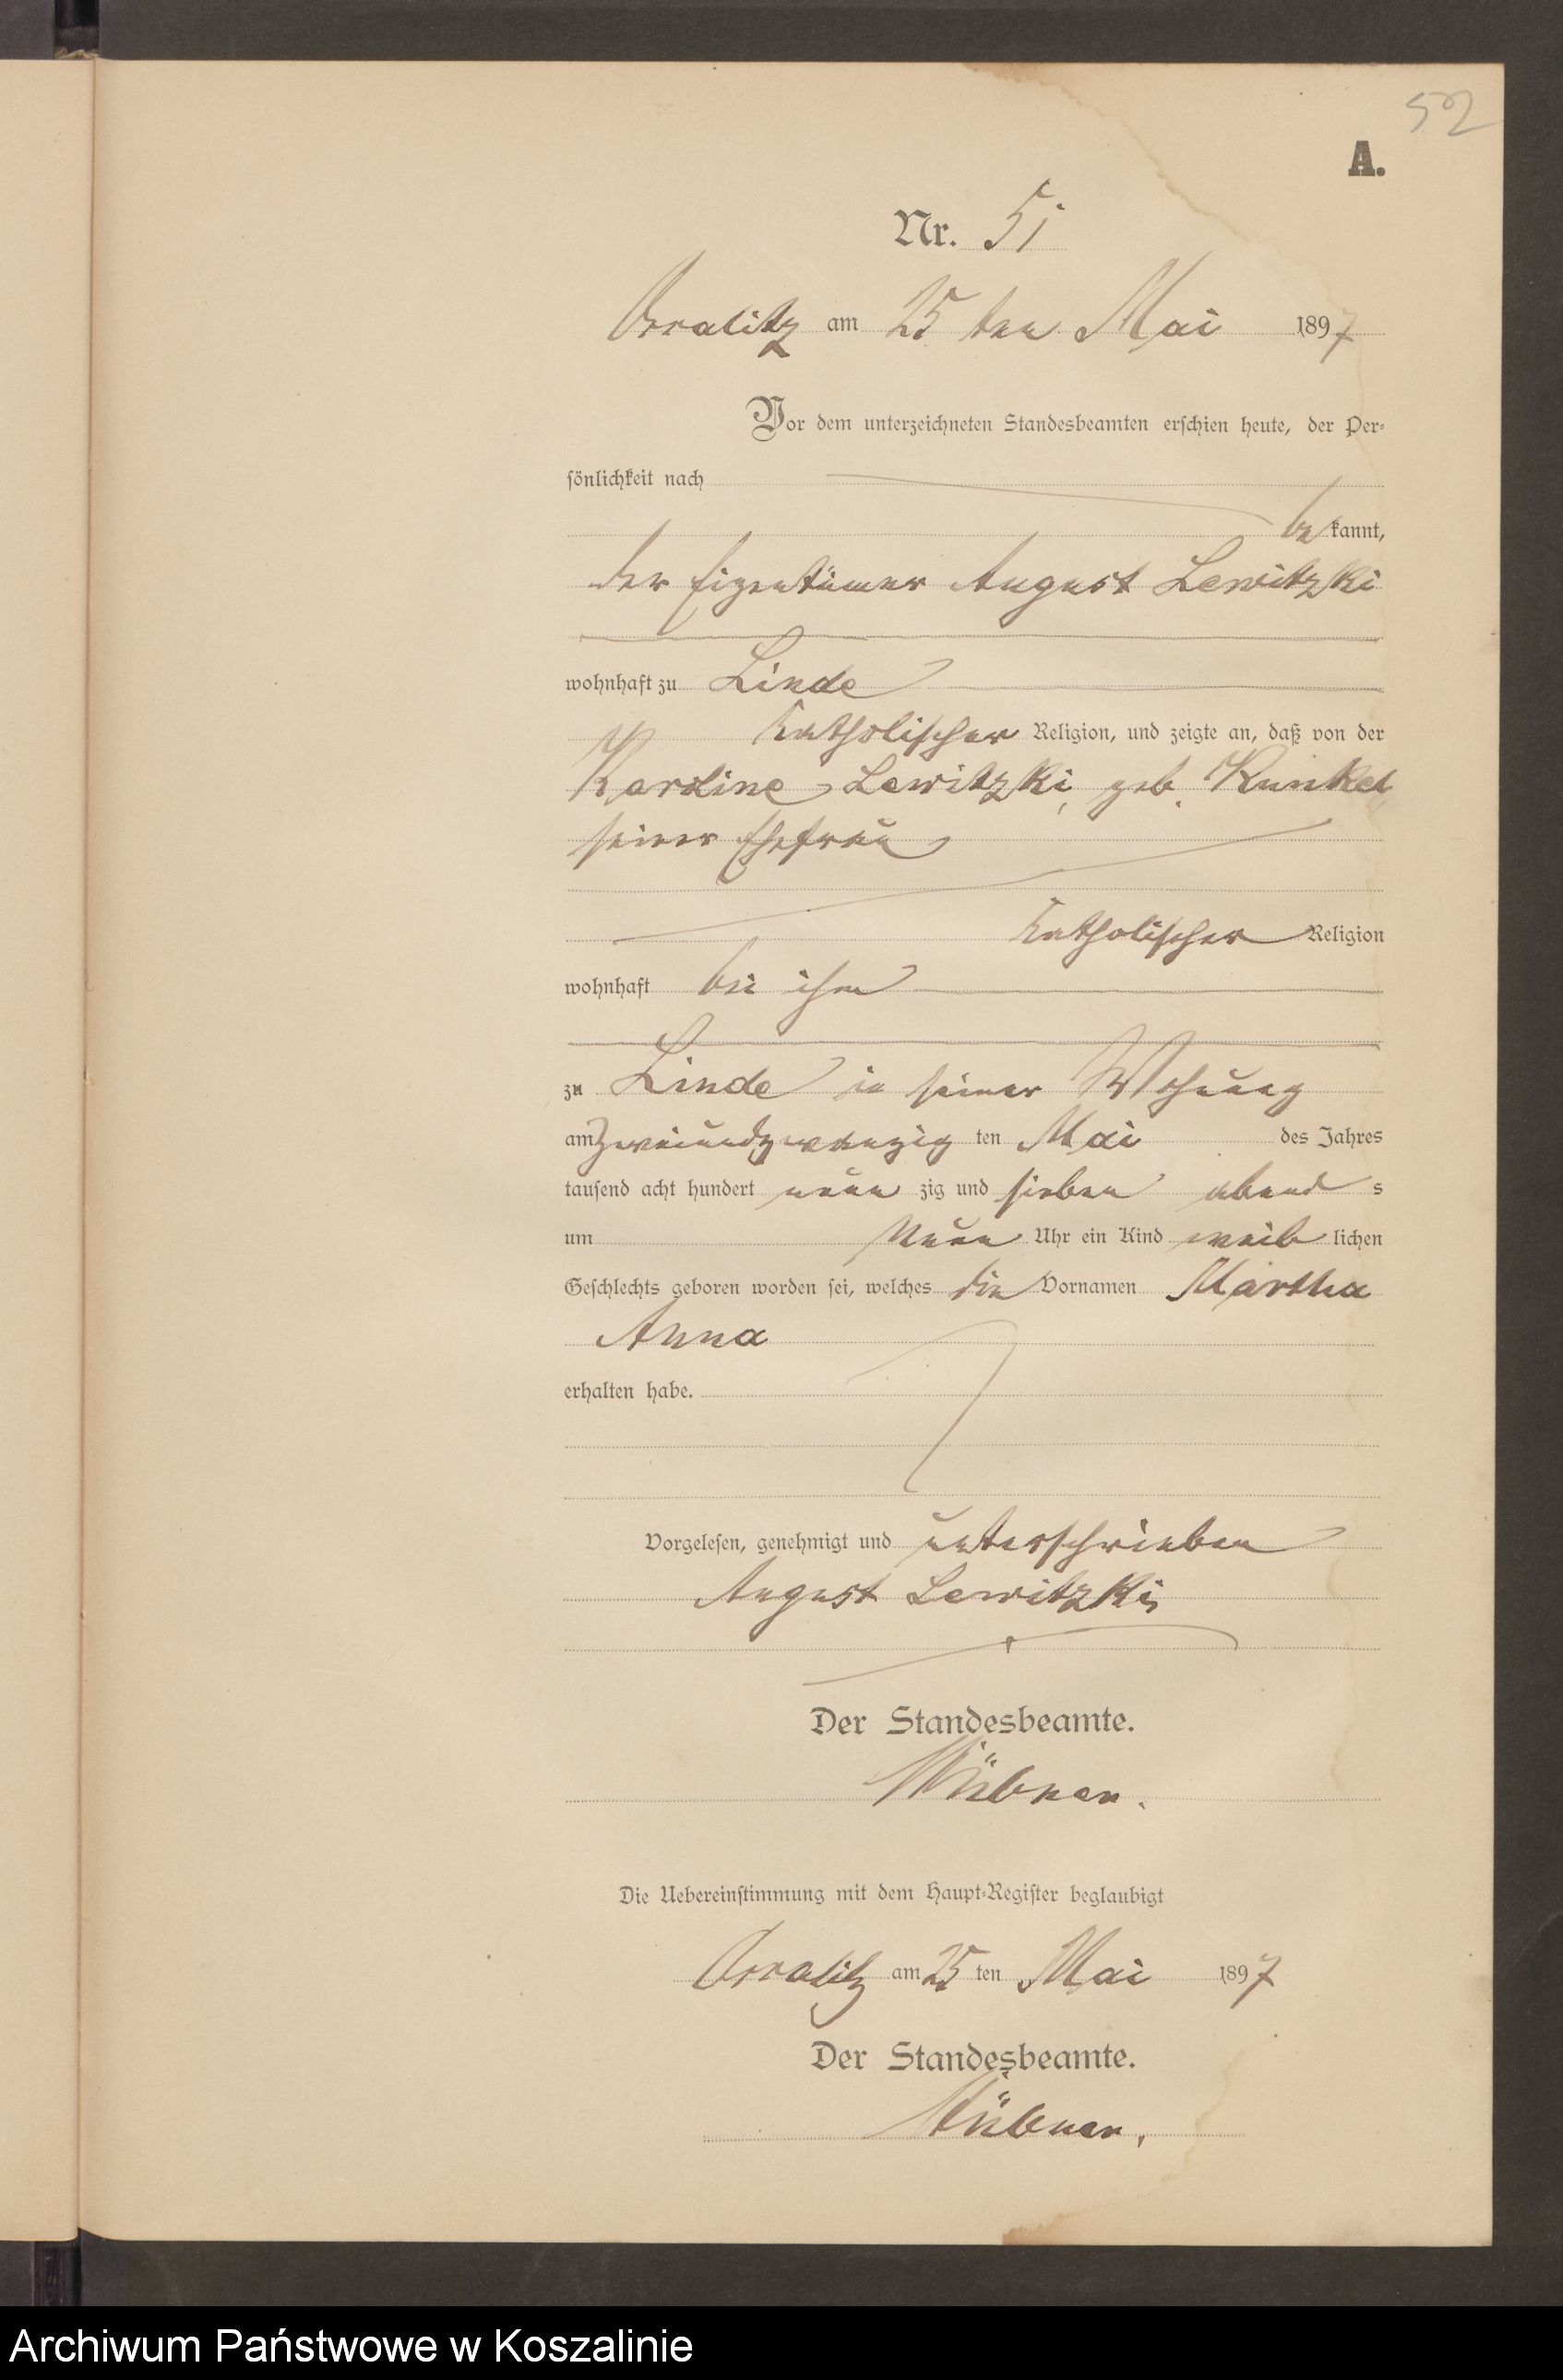 52
A.
Nr. 51
am 25 ten Mai 1897
Vor dem unterzeichneten Standesbeamten erschien heute, der Per-
sönlichkeit nach
be kannt,
der Eigentümer August Lewitzki
wohnhaft zu Linde
katholischer Religion, und zeigte an, daß von der
Karoline Lewitzki, geb. Kunkel,
seiner Ehefrau
katholischer Religion
wohnhaft bei ihm
zu Linde in seiner Wohnung
am zweiundzwanzig ten Mai des Jahres
tausend acht hundert neun zig und sieben abend s
um neun Uhr ein Kind weib lichen
Geschlechts geboren worden sei, welches die Vornamen Martha
Anna
erhalten habe.
Vorgelesen, genehmigt und unterschrieben
August Lewitzki
Der Standesbeamte.
Die Uebereinstimmung mit dem Haupt-Register beglaubigt
am 25 ten Mai 1897
Der Standesbeamte.
Archiwum Państwowe w Koszalinie